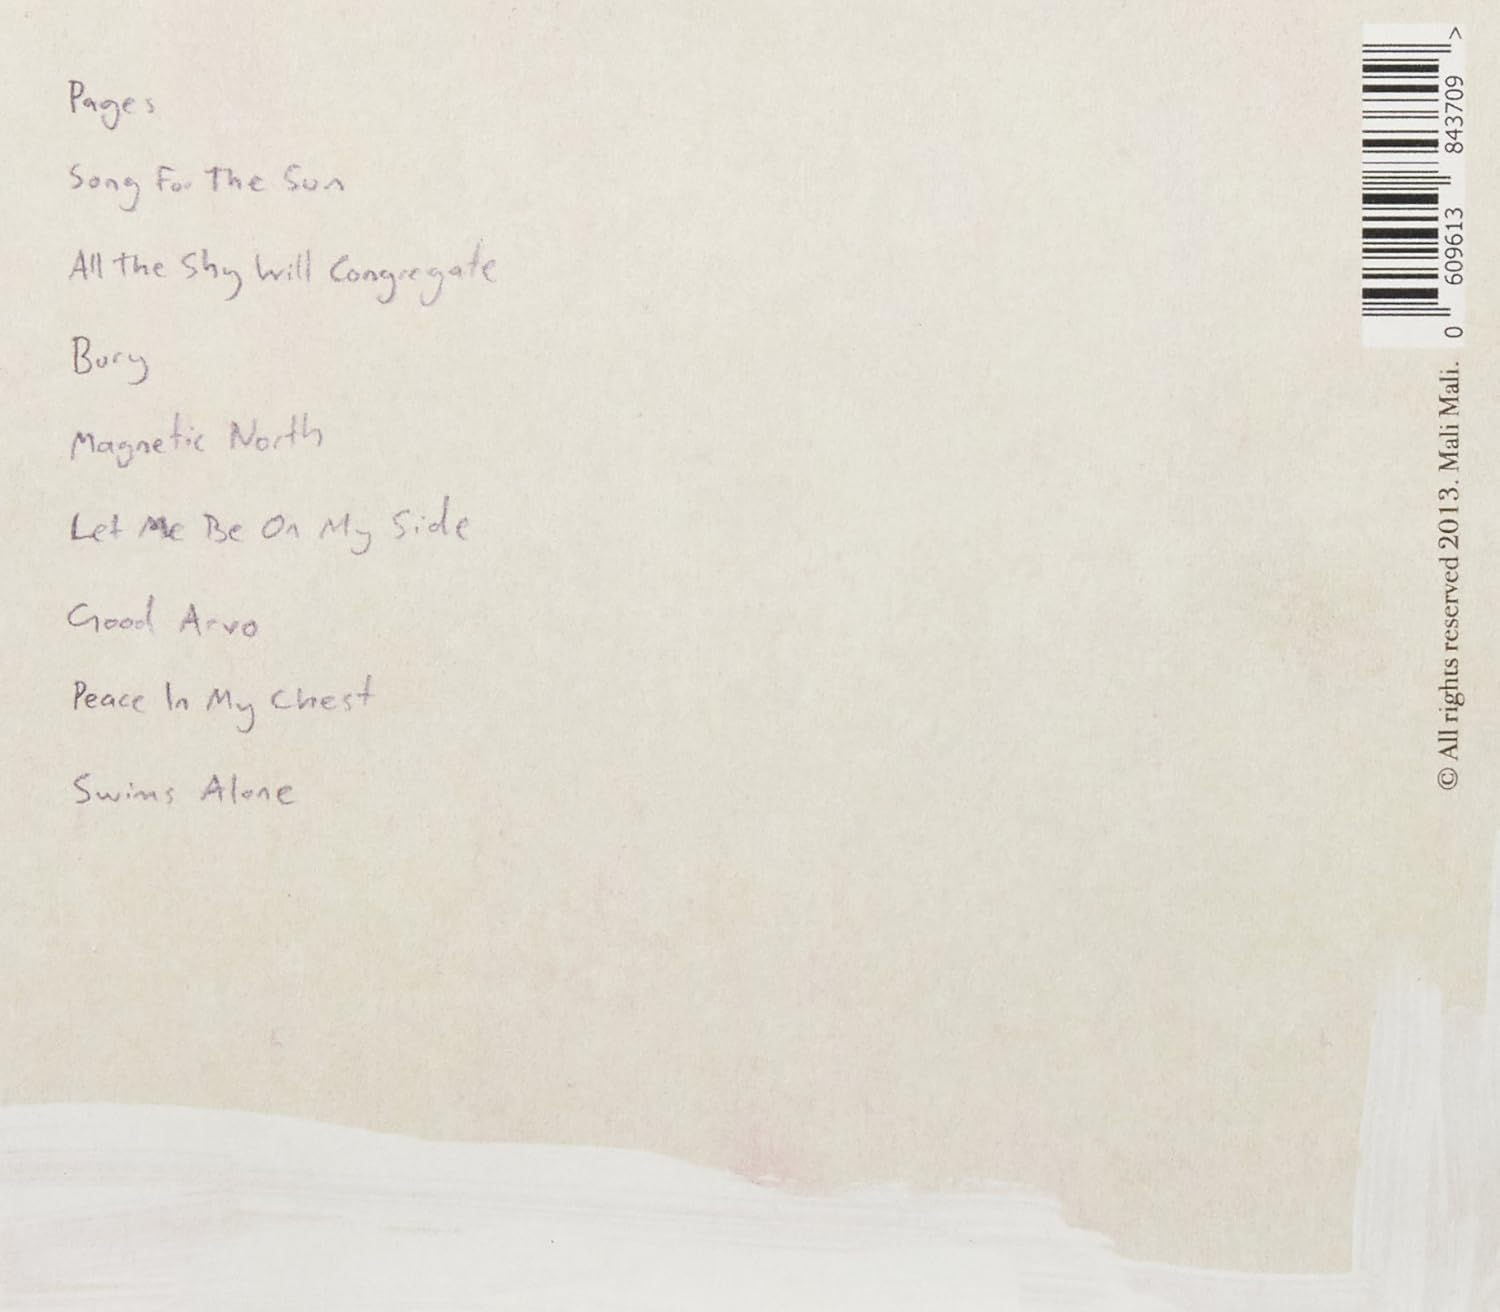 Pages
Song For The Sun
All The Shy Will Congregate
Bury
Magnetic North
Let Me Be On My Side
Good Arvo
Peace In My Chest
Swims Alone
0 609613 843709 >
© All rights reserved 2013. Mali Mali.